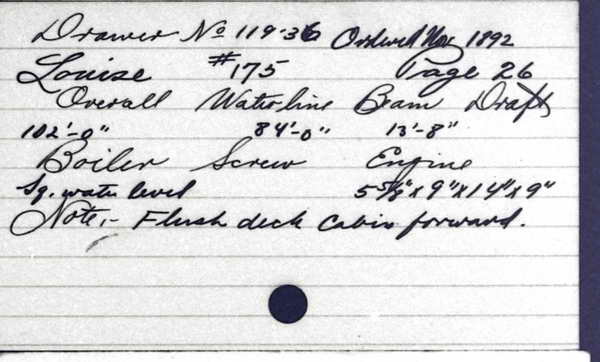 Drawer No 119-36 Ordered Nov 1892
Louise #175 Page 26
Overall Waterline Beam Draft
102'-0" 84'-0" 13'-8"
Boiler Screw Engine
Sq. water level 5 5/8" x 9" x 14" x 9"
Note,- Flush deck Cabin forward.